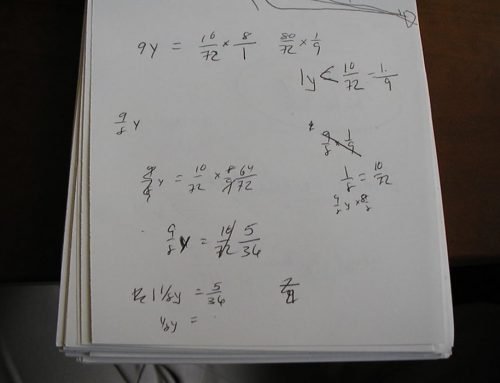 9y = 10/72 × 8/1    80/72 × 1/9
1y < 10/72 = 1/9
9/8 y
9/8 × 1/9
y = 10/72 × 8    64/72
1/8 = 10/72
9/8 y × 8/8
9/8 y = 10/72    5/36
1 1/8 y = 5/36
1/8 y =